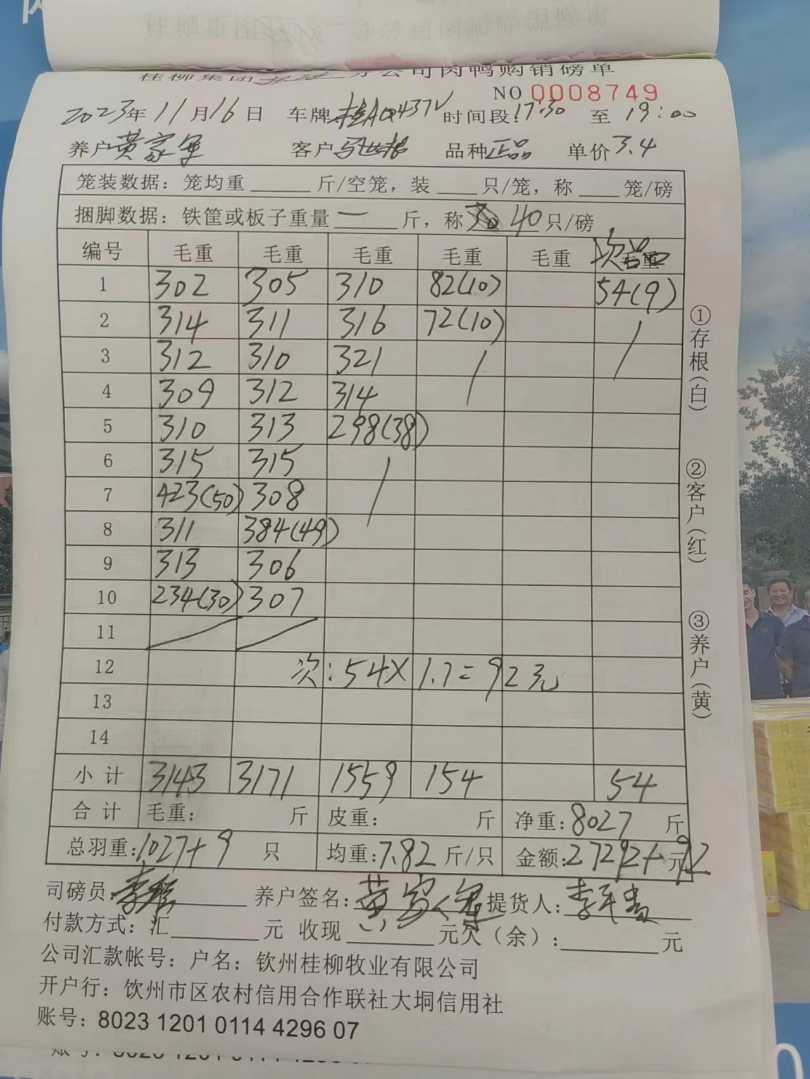 分公司肉鸭购销磅单
NO 0008749
2023年11月16日 车牌 时间段17:30 至 19:00
养户黄家军 客户 品种正品 单价3.4
笼装数据：笼均重 斤/空笼，装 只/笼，称 笼/磅
捆脚数据：铁筐或板子重量 一 斤，称 40只/磅
编号 毛重 毛重 毛重 毛重 毛重 次品
1 302 305 310 82(10) 54(9)
2 314 311 316 72(10) /
3 312 310 321 /
4 309 312 314
5 310 313 298(38)
6 315 315 /
7 423(50) 308
8 311 384(49)
9 313 306
10 234(30) 307
11 / /
12 次:54X1.7=92元
13
14
小计 3143 3171 1559 154 54
合计 毛重： 斤 皮重： 斤 净重：8027 斤
总羽重：1027+9 只 均重：7.82 斤/只 金额：27292+92元
司磅员： 养户签名：黄家军 提货人：
付款方式：汇 元 收现 元欠（余）： 元
公司汇款帐号：户名：钦州桂柳牧业有限公司
开户行：钦州市区农村信用合作联社大垌信用社
账号：8023 1201 0114 4296 07
①存根（白）
②客户（红）
③养户（黄）